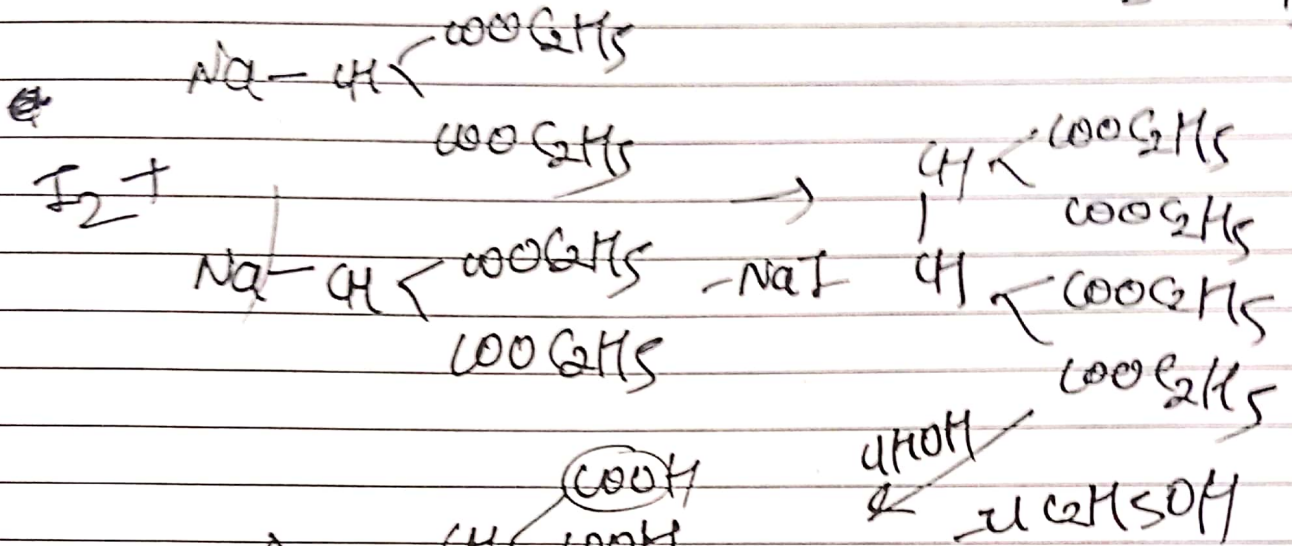 COOC2H5
Na - CH <
COOC2H5
I2 +
Na - CH < COOC2H5
COOC2H5
→
-NaI
CH < COOC2H5
COOC2H5
|
CH < COOC2H5
COOC2H5
4HOH
C2H5OH
COOH
CH COOH